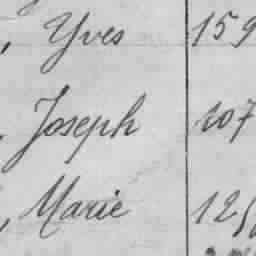 , Yves 159
, Joseph 207
, Marie 125